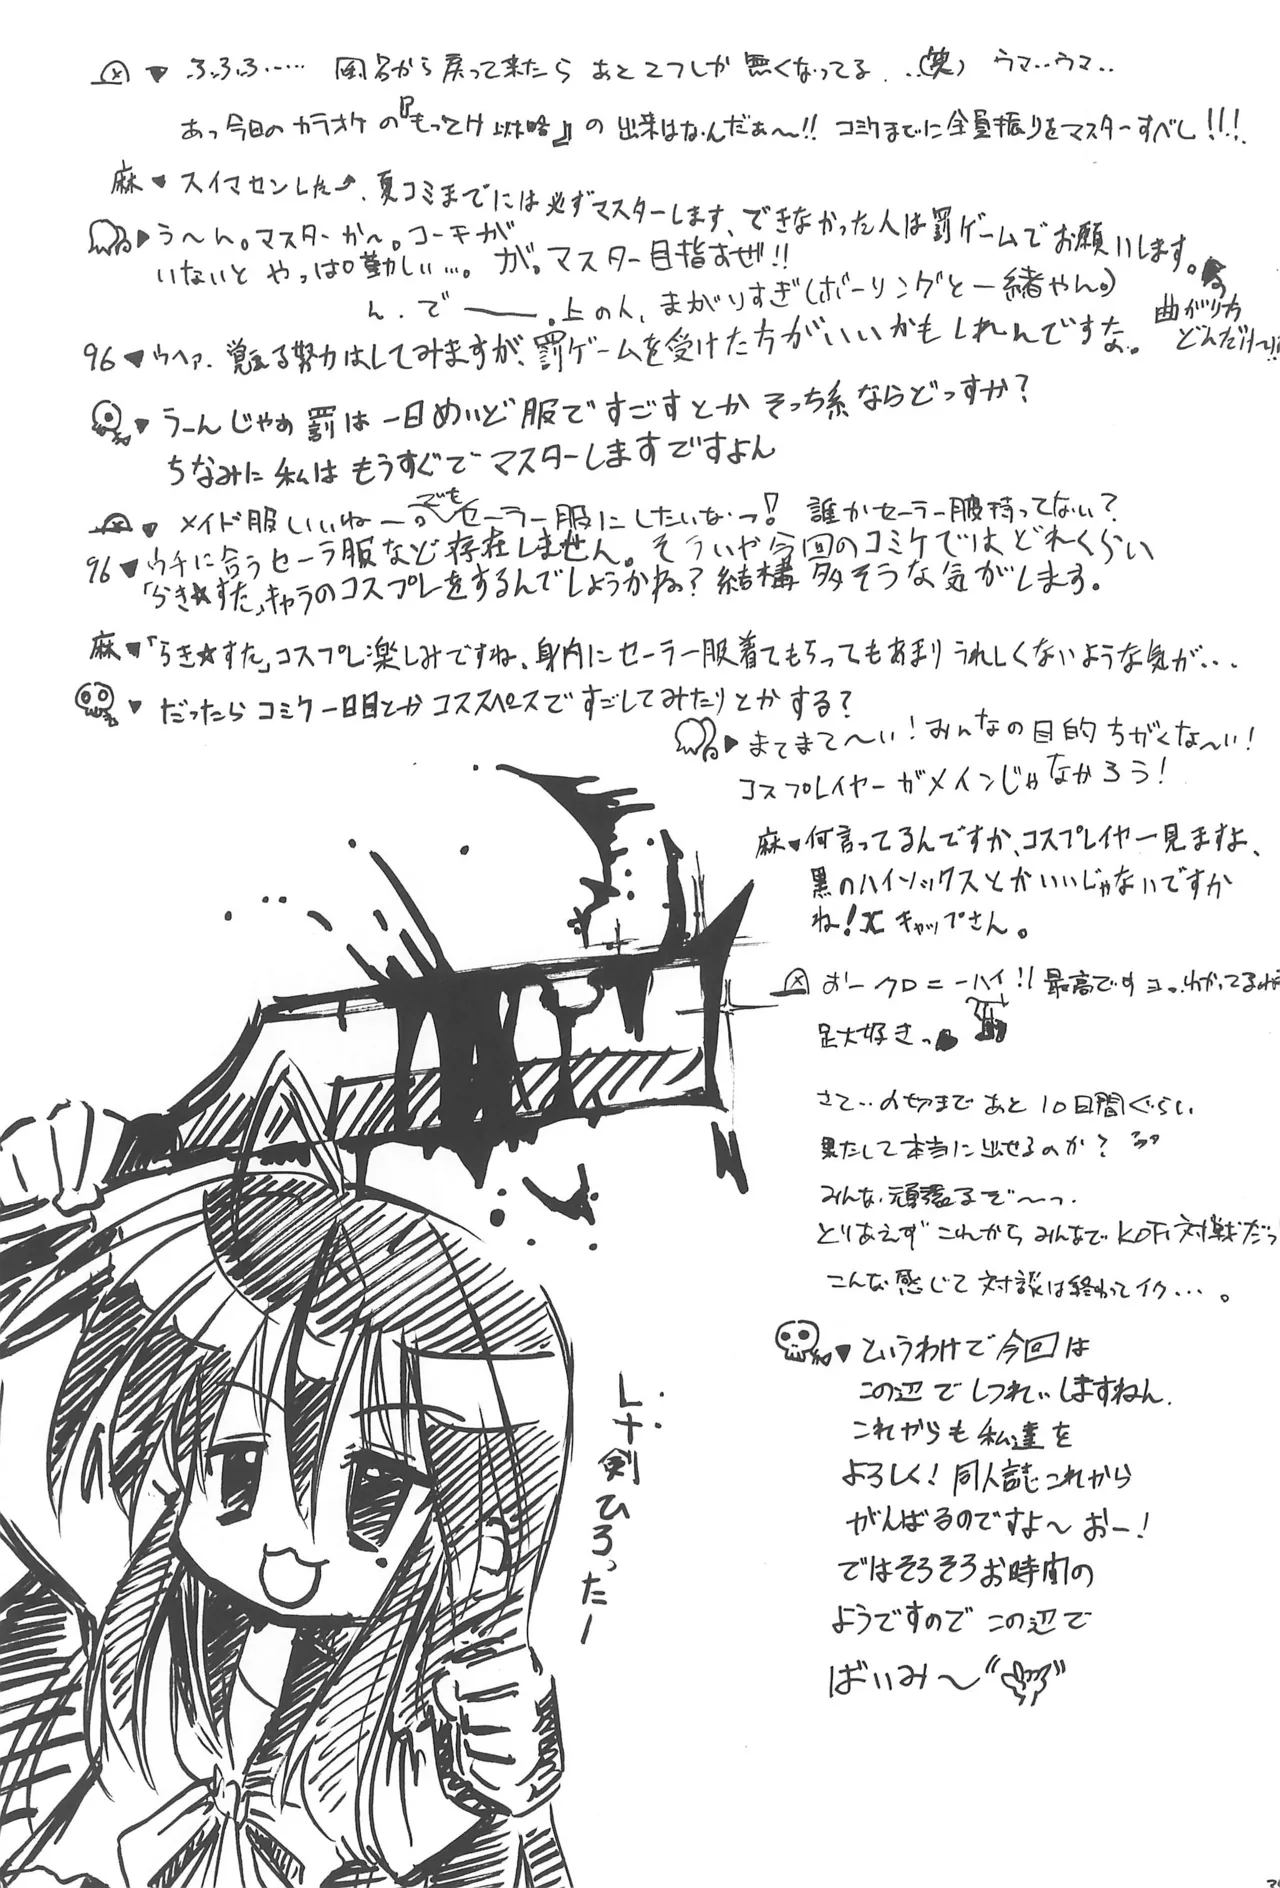 ふふふ…… 便名から戻って来たら あと2つしか 無くなってる...(笑) ウマ..ウマ..
あっ今日のカラオケの『もってけ 以下略』の 出来はなんだぁ〜!! コミケまでに全員振りをマスターすべし!!!
麻♥スイマセンした、夏コミまでには必ずマスターします、できなかった人は罰ゲームでお願いします。
▶う〜ん。マスターか〜。コーチが
いないと やっぱ 厳しい…。が。マスター目指すぜ!!
ん.で ――.上の人、まがりすぎ(ボーリングと一緒やん。)
曲がり方
どんだけ〜!!
96♥ウヘァ.覚える努力はしてみますが、罰ゲームを受けた方がいいかもしれんですな。
♥うーんじゃぁ罰は一日めいど服ですごすとか そっち系ならどっすか?
ちなみに私は もうすぐで マスターしますですよん
♥ メイド服もいいねー。でもセーラー服にしたいなっ! 誰かセーラー服持ってない?
96♥ウチに合うセーラ服など存在しません。そういや今回のコミケではどれくらい
「らき☆すた」キャラのコスプレをするんでしょうかね?結構 多そうな気がします。
麻♥「らき☆すた」コスプレ楽しみですね、身内にセーラー服着てもらってもあまりうれしくないような気が...
♥ だったら コミケ一日目とか コススペースですごしてみたりとかする?
▶まてまて〜い!みんなの目的 ちがくな〜い!
コスプレイヤーがメインじゃなかろう!
麻♥何言ってるんですか、コスプレイヤー見ますよ、
黒のハイソックスとかいいじゃないですか
ね!Xキャップさん。
おークロニーハイ!!最高ですヨ..わかってるねぇ
足大好きっ
さて..〆切まで あと10日間ぐらい
果たして本当に出せるのか?
みんな頑張るぞ〜っ.
とりあえず これから みんなで KOF対戦だっ!
こんな感じて 対談は終わってイク...。
♥というわけで今回は
この辺でしつれいしますねん.
これからも私達を
よろしく!同人誌これから
がんばるのですよ〜おー!
ではそろそろお時間の
ようですので この辺で
ばいみ〜
レナ剣ひろったー